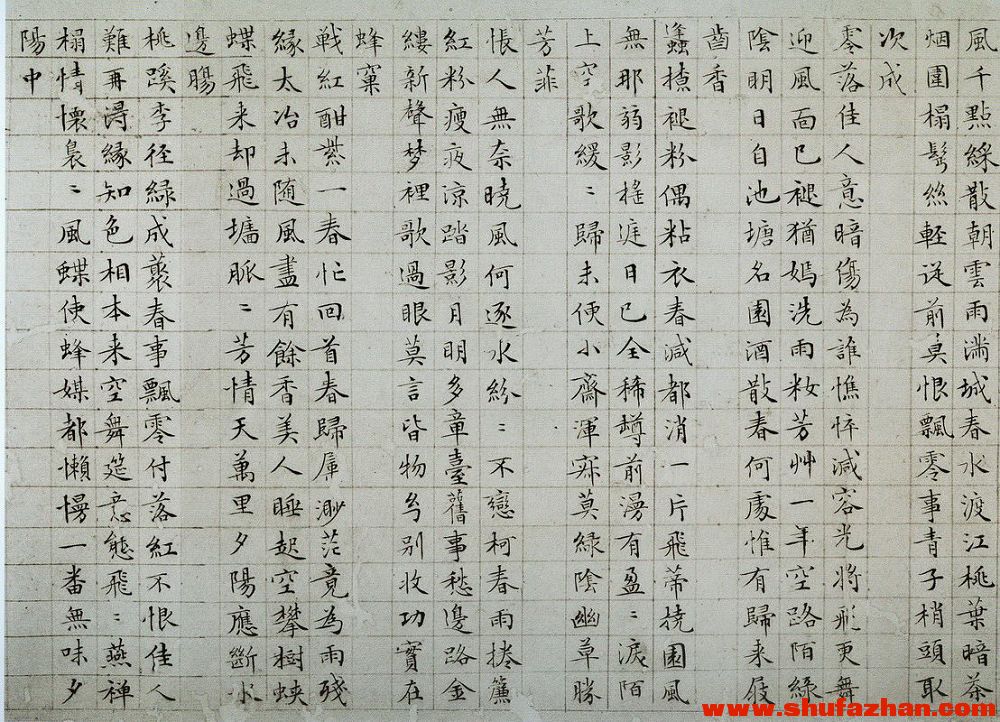 風千點綵散朝雲雨滿城春水渡江桃葉暗茶
烟圍榻鬂絲輕從前莫恨飄零事青子梢頭取
次成
零落佳人意暗傷為誰憔悴減容光將飛更舞
迎風面已褪猶嫣洗雨粧芳艸一年空路陌綠
陰明日自池塘名園酒散春何處惟有歸来屐
齒香
蠭撩褪粉偶粘衣春減都消一片飛蒂撓園風
無那弱影搖遲日已全稀樽前漫有盈〻淚陌
上空歌緩〻歸未便小齋渾寂莫綠陰幽草勝
芳菲
悵人無奈曉風何逐水紛〻不戀柯春雨捲簾
紅粉瘦夜涼踏影月明多章臺舊事愁邊路金
縷新聲梦裡歌過眼莫言皆物幻別收功實在
蜂窠
戰紅酣紫一春忙回首春歸屬渺茫竟為雨殘
緣太冶未随風盡有餘香美人睡起空攀樹蛺
蝶飛来却過墻脈〻芳情天萬里夕陽應斷水
邊腸
桃蹊李徑綠成叢春事飄零付落紅不恨佳人
難再得緣知色相本来空舞筵意態飛〻燕禅
榻情懷裊〻風蝶使蜂媒都懶慢一番無味夕
陽中
www.shufazhan.com